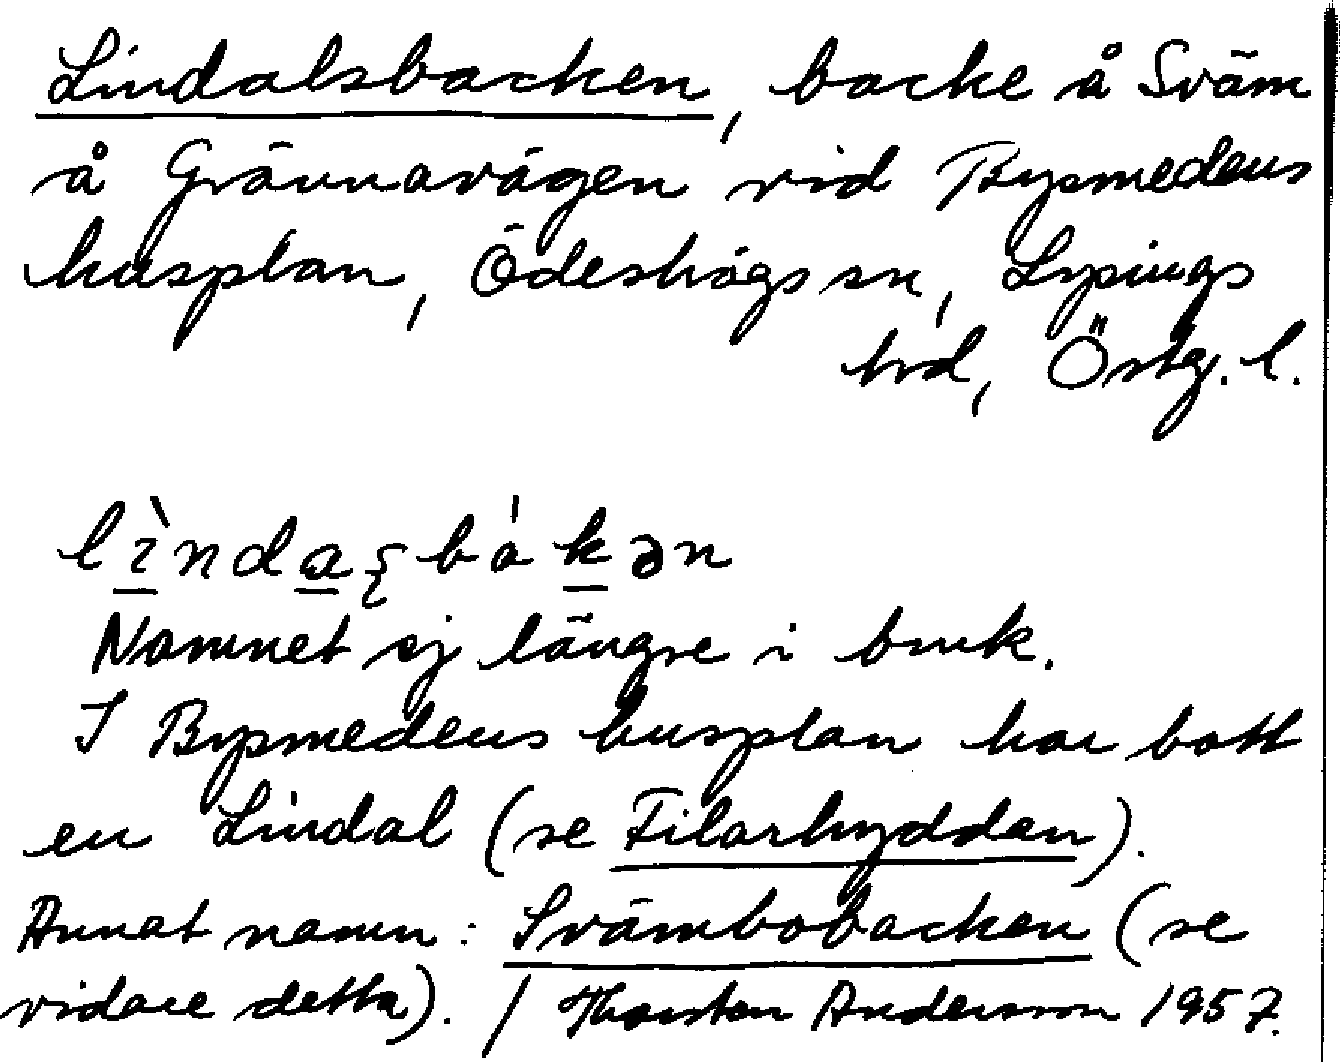 Lindalsbacken, backe å Sväm
å Grännavägen vid Bysmedens
husplan, Ödeshögs sn, Lysings
hrd, Östg. l.
lìndaʂbákən
Namnet ej längre i bruk.
I Bysmedens husplan har bott
en Lindal (se Filarhyddan).
Annat namn: Svämbobacken (se
vidare detta). / Thorsten Andersson 1957.